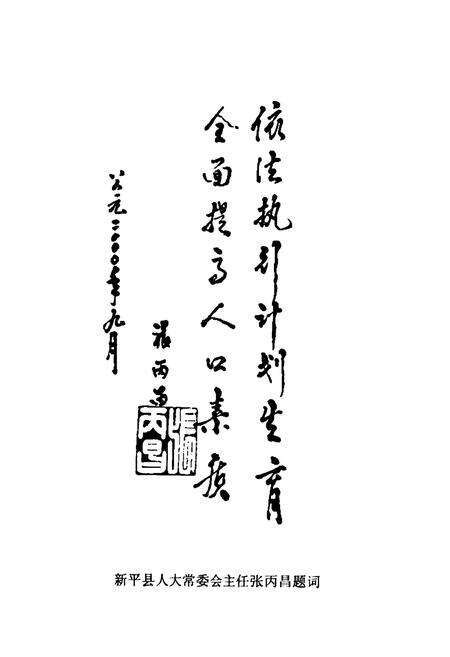 依法执行计划生育
全面提高人口素质
张丙昌
张丙昌
公元二〇〇〇年九月
新平县人大常委会主任张丙昌题词